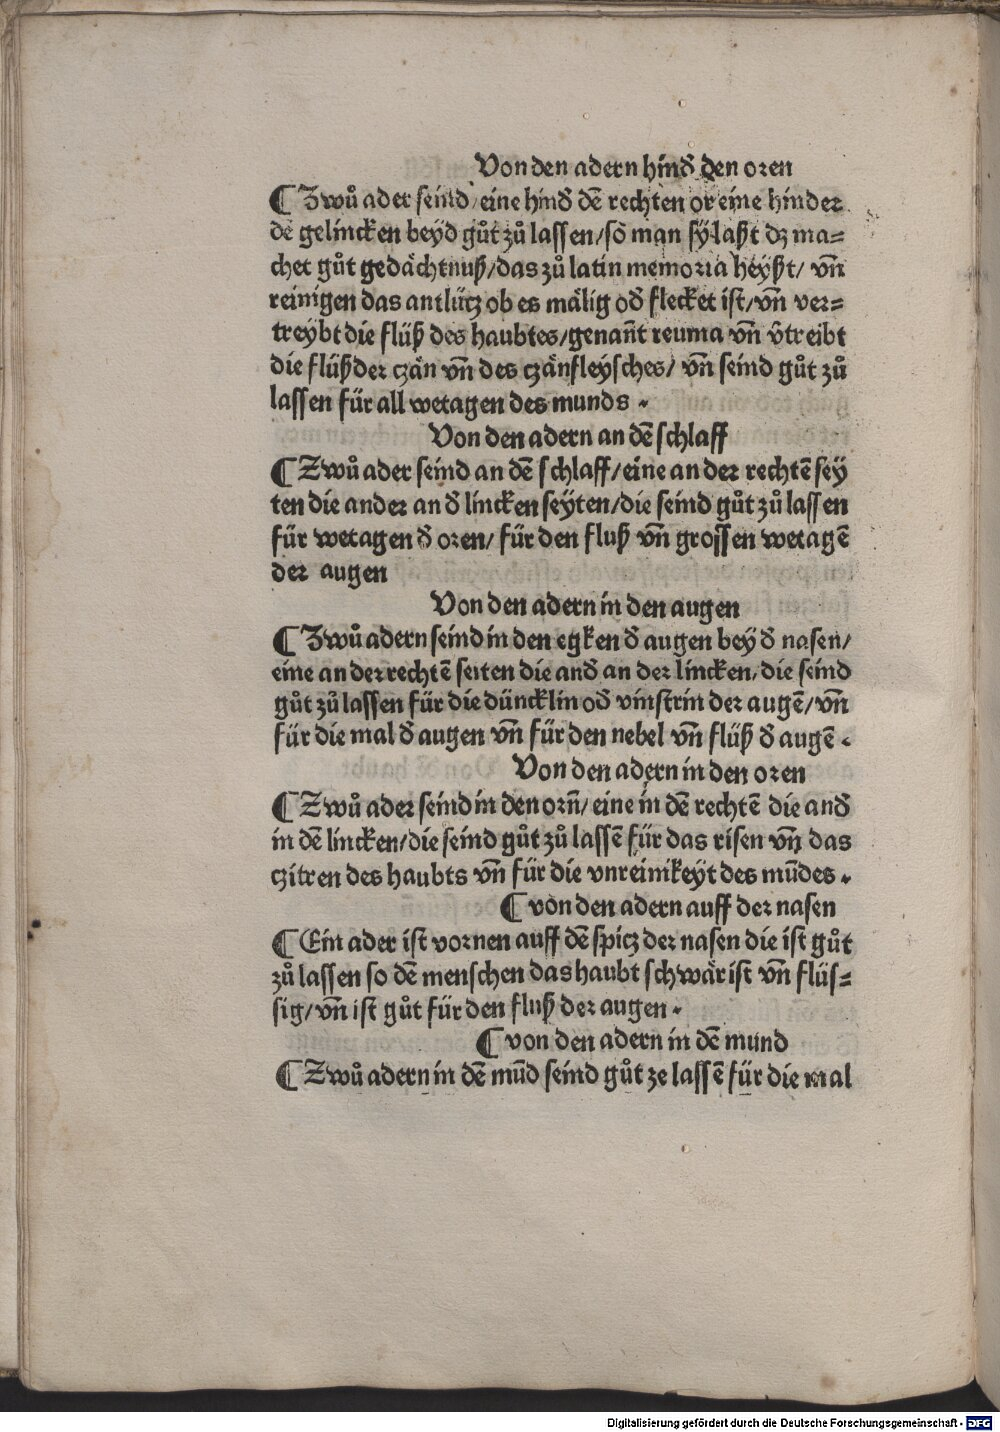 Von den adern hind̕ den oren
¶ Zwů ader seind/eine hind̕ dẽ rechten or eine hinder
dẽ gelincken beyd gůt zů lassen/so man sy laßt dz ma⸗
chet gůt gedächtnuß/das zů latin memoria heyßt/ vñ
reinigen das antlütz ob es mälig od̕ flecket ist/vñ ver⸗
treybt die flüß des haubtes/genañt reuma vñ v̄treibt
die flüß der czän vñ des czänfleysches/ vñ seind gůt zů
lassen für all wetagen des munds .
Von den adern an dẽ schlaff
¶ Zwů ader seind an dẽ schlaff/eine an der rechtẽ sey
ten die ander an d̕ lincken seyten/die seind gůt zů lassen
für wetagen d̕ oren/ für den fluß vñ grossen wetagẽ
der augen
Von den adern in den augen
¶ Zwů adern seind in den egken d̕ augen bey d̕ nasen/
eine an der rechtẽ seiten die and̕ an der lincken/die seind
gůt zů lassen für die düncklin od̕ vinstrin der augẽ/vñ
für die mal d̕ augen vñ für den nebel vñ flüß d̕ augẽ .
Von den adern in den oren
¶ Zwů ader seind in den orñ/ eine in dẽ rechtẽ die and̕
in dẽ lincken/die seind gůt zů lassẽ für das risen vñ das
czitren des haubts vñ für die vnreinikeyt des mūdes .
¶ von den adern auff der nasen
¶ Ein ader ist vornen auff dẽ spicz der nasen die ist gůt
zů lassen so dẽ menschen das haubt schwär ist vñ flüs⸗
sig/vñ ist gůt für den fluß der augen .
¶ von den adern in dẽ mund
¶ Zwů adern in dẽ mūd seind gůt ze lassẽ für die mal
Digitalisierung gefördert durch die Deutsche Forschungsgemeinschaft - DFG